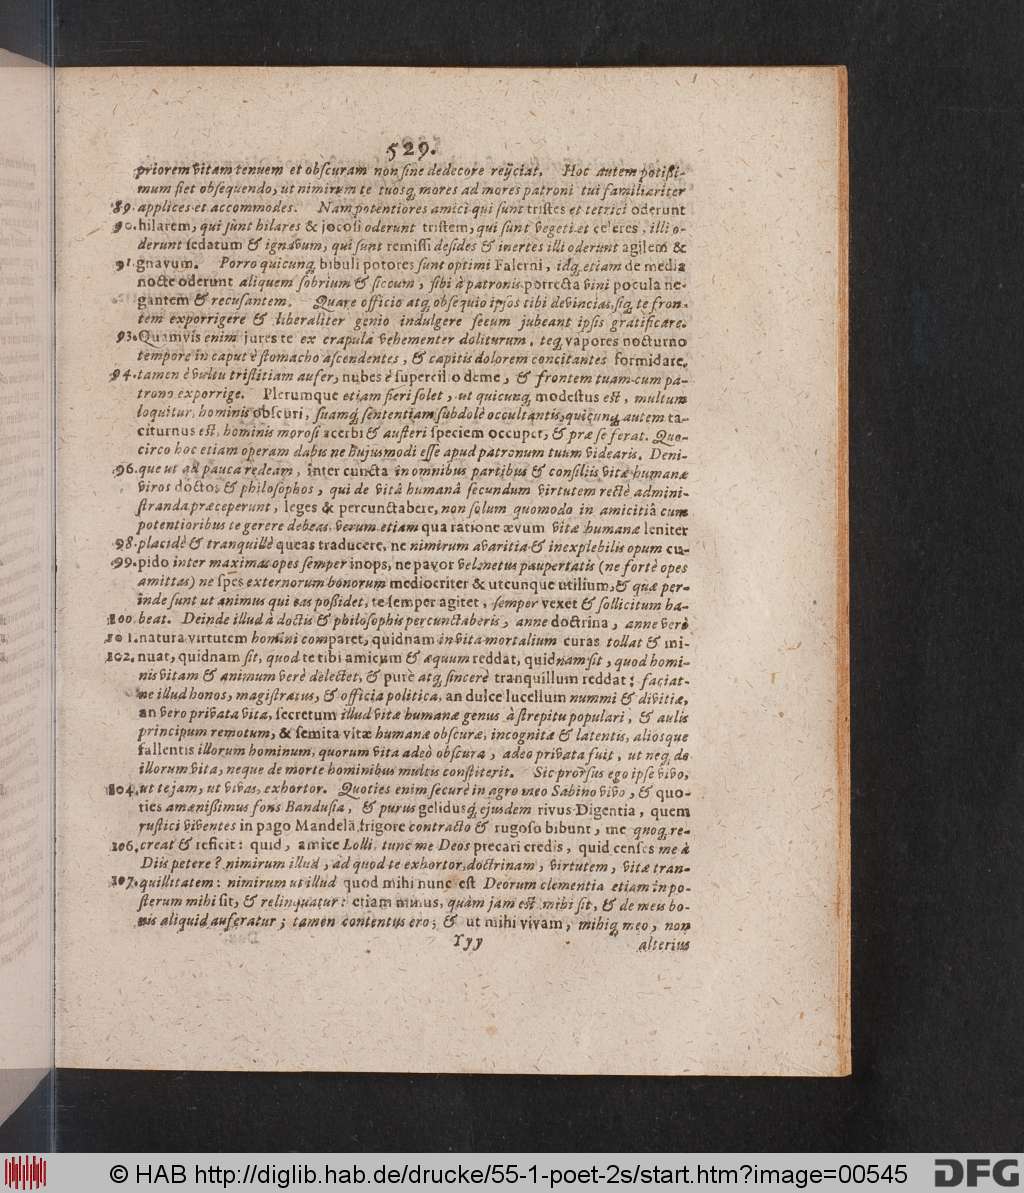 529.
priorem vitam tenuem et obscuram non sine dedecore reijciat. Hoc autem potissi-
mum fiet obsequendo, ut nimirum te tuosq́; mores ad mores patroni tui familiariter
89. applices et accommodes. Nam potentiores amici qui sunt tristes et tetrici oderunt
90. hilarem, qui sunt hilares & jocosi oderunt tristem, qui sunt vegeti et celeres, illi o-
derunt sedatum & ignavum, qui sunt remissi desides & inertes illi oderunt agilem &
91. gnavum. Porro quicunq́; bibuli potores sunt optimi Falerni, idq́; etiam de media
nocte oderunt aliquem sobrium & siccum, sibi à patronis porrecta vini pocula ne-
gantem & recusantem. Quare officio atq́; obsequio ipsos tibi devincias, siq́; te fron-
tem exporrigere & liberaliter genio indulgere secum jubeant ipsis gratificare.
93. Quamvis enim jures te ex crapula vehementer doliturum, teq́; vapores nocturno
tempore in caput è stomacho ascendentes, & capitis dolorem concitantes formidare,
94. tamen è vultu tristitiam aufer, nubes è supercilio deme, & frontem tuam cum pa-
trono exporrige. Plerumque etiam fieri solet, ut quicunq́; modestus est, multum
loquitur, hominis obscuri, suamq́; sententiam subdolè occultantis, quicunq́; autem ta-
citurnus est, hominis morosi acerbi & austeri speciem occupet, & præ se ferat. Quo-
circo hoc etiam operam dabis ne hujusmodi esse apud patronum tuum videaris. Deni-
96. que ut ad pauca redeam, inter cuncta in omnibus partibus & consiliis vitæ humanæ
viros doctos & philosophos, qui de vitâ humanâ secundum virtutem rectè admini-
stranda præceperunt, leges & percunctabere, non solum quomodo in amicitiâ cum
potentioribus te gerere debeas, verum etiam qua ratione ævum vitæ humanæ leniter
98. placidè & tranquillè queas traducere, ne nimirum avaritia & inexplebilis opum cu-
99. pido inter maximas opes semper inops, ne pavor vel metus paupertatis (ne fortè opes
amittas) ne spes externorum bonorum mediocriter & utcunque utilium, & quæ per-
inde sunt ut animus qui eas possidet, te semper agitet, semper vexet & sollicitum ha-
100. beat. Deinde illud à doctis & philosophis percunctaberis, anne doctrina, anne verò
101. natura virtutem homini comparet, quidnam in vita mortalium curas tollat & mi-
102. nuat, quidnam sit, quod te tibi amicum & æquum reddat, quidnam sit, quod homi-
nis vitam & animum verè delectet, & purè atq́; sincerè tranquillum reddat: faciat-
ne illud honos, magistratus, & officia politica, an dulce lucellum nummi & divitiæ,
an vero privata vita, secretum illud vitæ humanæ genus à strepitu populari, & aulis
principum remotum, & semita vitæ humanæ obscuræ, incognitæ & latentis, aliosque
fallentis illorum hominum, quorum vita adeò obscura, adeo privata fuit, ut neq́; de
illorum vita, neque de morte hominibus multis constiterit. Sic prorsus ego ipse vivo,
104. ut te jam, ut vivas, exhortor. Quoties enim securè in agro meo Sabino vivo, & quo-
ties amænissimus fons Bandusia, & purus gelidusq́; ejusdem rivus Digentia, quem
rustici viventes in pago Mandelâ frigore contracto & rugoso bibunt, me quoq́; re-
106. creat & reficit: quid, amice Lolli, tunc me Deos precari credis, quid censes me à
Diis petere? nimirum illud, ad quod te exhortor, doctrinam, virtutem, vitæ tran-
107. quillitatem: nimirum ut illud quod mihi nunc est Deorum clementia etiam in po-
sterum mihi sit, & relinquatur: etiam minus, quàm jam est mihi sit, & de meis bo-
nis aliquid auferatur; tamen contentus ero; & ut mihi vivam, mihiq́; meo, non
Yyy alterius
© HAB http://diglib.hab.de/drucke/55-1-poet-2s/start.htm?image=00545
DFG